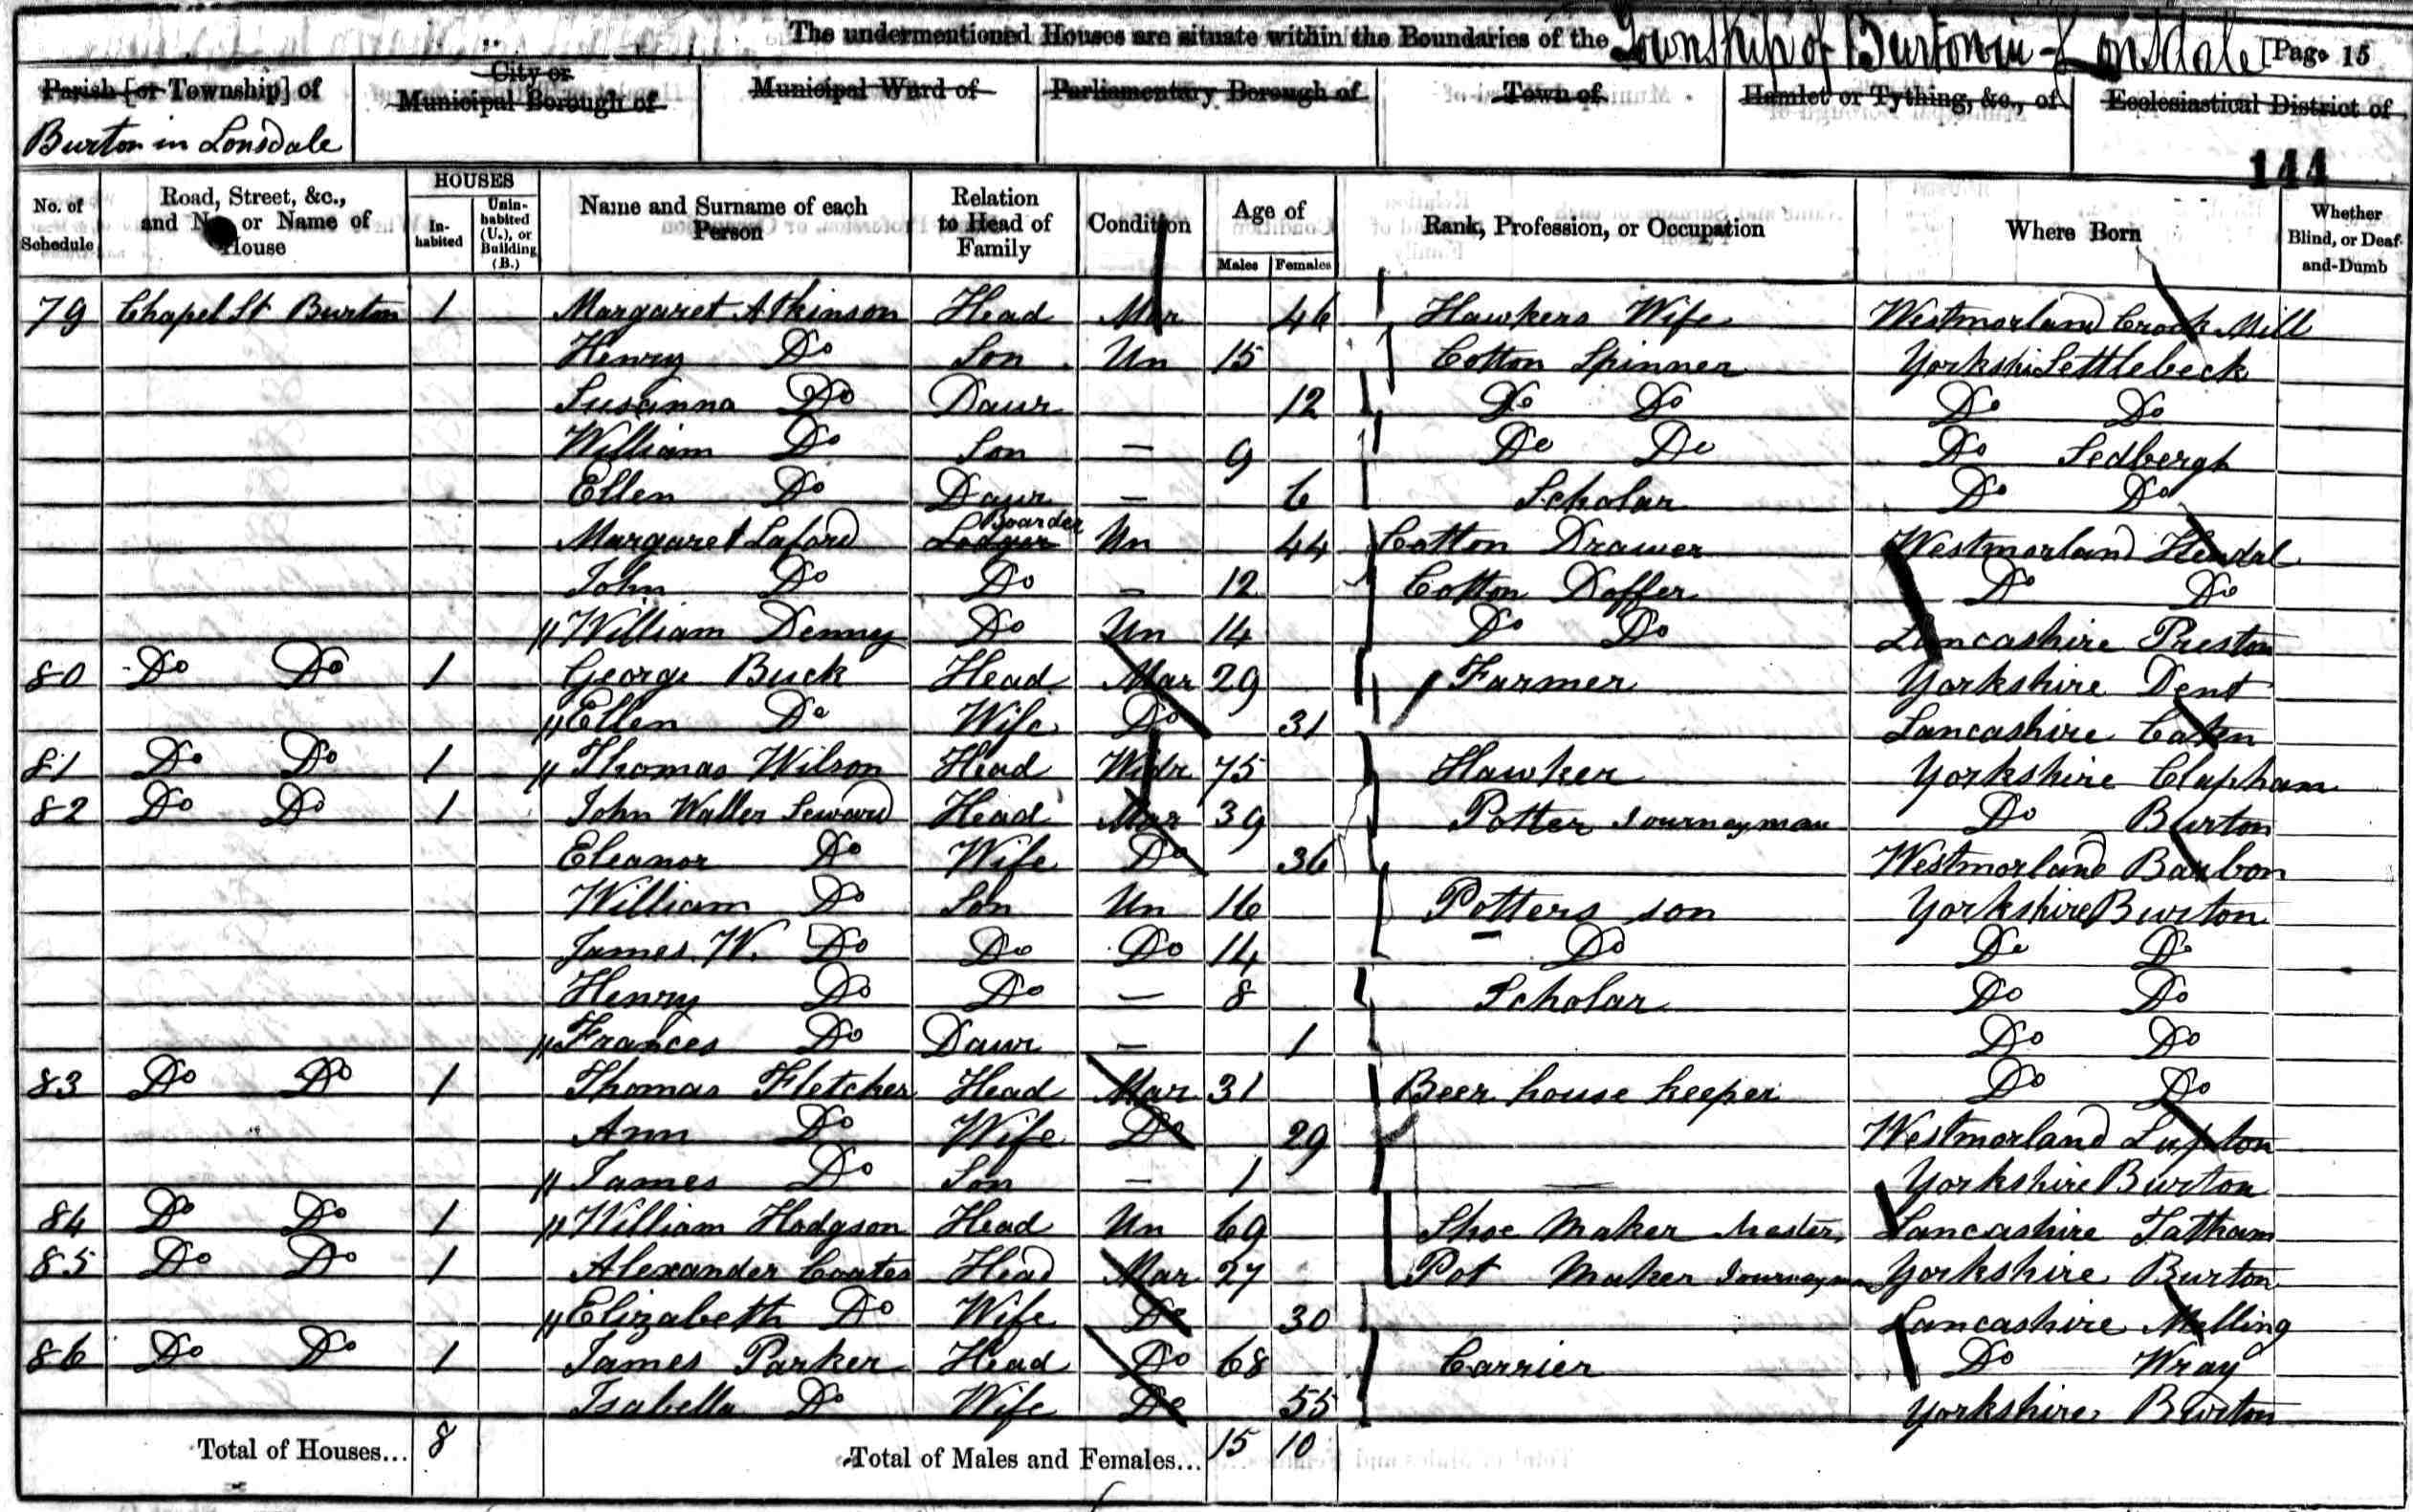 The undermentioned Houses are situate within the Boundaries of the Township of Burton in Lonsdale [Page 15
Parish [or Township] of
Burton in Lonsdale
City or Municipal Borough of
Municipal Ward of
Parliamentary Borough of
Town of
Hamlet or Tything, &c., of
Ecclesiastical District of
144
No. of Schedule
Road, Street, &c., and No. or Name of House
HOUSES
In-habited
Unin-habited (U.), or Building (B.)
Name and Surname of each Person
Relation to Head of Family
Condition
Age of
Males Females
Rank, Profession, or Occupation
Where Born
Whether Blind, or Deaf-and-Dumb
79 Chapel St Burton 1 Margaret Atkinson Head Mar 46 Hawkers Wife Westmorland Crook Mill
Henry Do Son Un 15 Cotton Spinner Yorkshi Settlebeck
Susanna Do Daur 12 Do Do Do Do
William Do Son — 9 Do Do Do Sedbergh
Ellen Do Daur — 6 Scholar Do Do
Margaret Laford Lodger Boarder Un 44 Cotton Drawer Westmorland Kendal
John Do Do — 12 Cotton Doffer Do Do
// William Denny Do Un 14 Do Do Lancashire Preston
80 Do Do 1 George Buck Head Mar 29 Farmer Yorkshire Dent
// Ellen Do Wife Do 31 Lancashire Caton
81 Do Do 1 // Thomas Wilson Head Widr 75 Hawker Yorkshire Clapham
82 Do Do 1 John Waller Seward Head Mar 39 Potter Journeyman Do Burton
Eleanor Do Wife Do 36 Westmorland Barbon
William Do Son Un 16 Potters son Yorkshire Burton
James W. Do Do Do 14 Do Do Do
Henry Do Do — 8 Scholar Do Do
// Frances Do Daur — 1 Do Do
83 Do Do 1 Thomas Fletcher Head Mar 31 Beer house keeper Do Do
Ann Do Wife Do 29 Westmorland Lupton
// James Do Son — 1 — Yorkshire Burton
84 Do Do 1 // William Hodgson Head Un 69 Shoe Maker Master Lancashire Tatham
85 Do Do 1 Alexander Coates Head Mar 27 Pot Maker Journeyman Yorkshire Burton
// Elizabeth Do Wife Do 30 Lancashire Melling
86 Do Do 1 James Parker Head Do 68 Carrier Do Wray
Isabella Do Wife Do 55 Yorkshire Burton
Total of Houses... 8 Total of Males and Females... 15 10